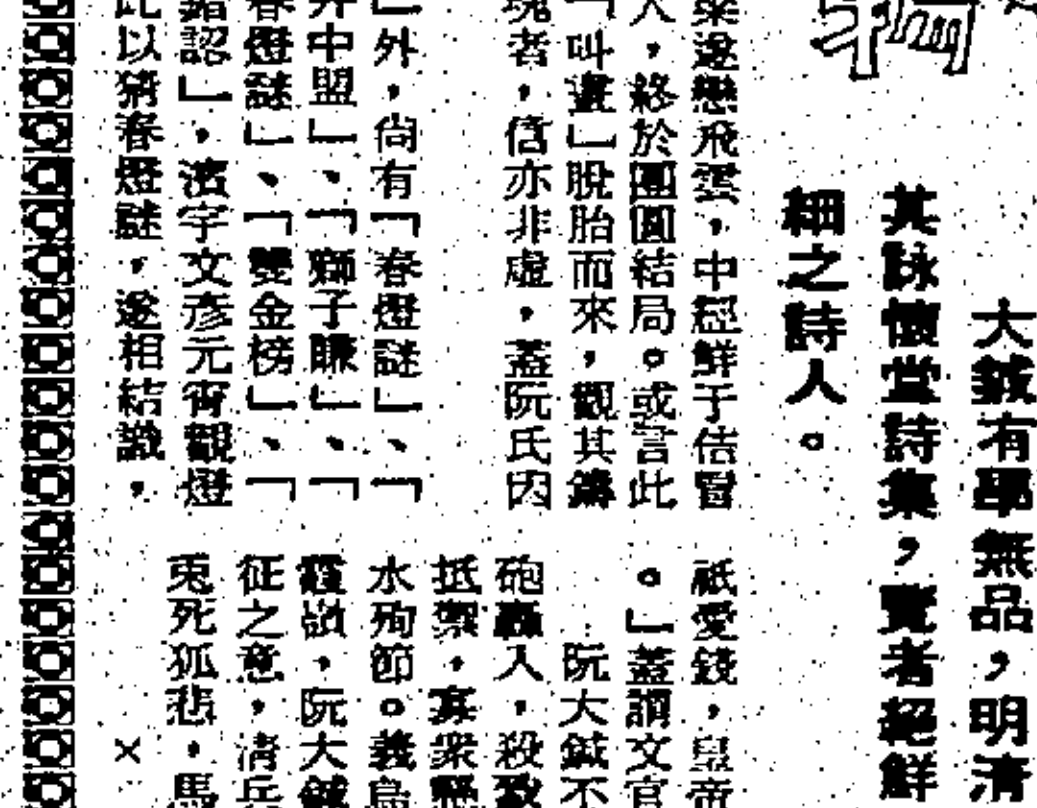 大鋮有學無品，明清
其詠懷堂詩集，覽者絕鮮
細之詩人。
棄遂戀飛雲，中經鮮于佶冒
人，終於團圓結局。或言此
「叫畫」脫胎而來，觀其鑄
塊者，信亦非虛，蓋阮氏因
」外，尚有「春燈謎」、「
井中盟」、「獅子賺」、「
春燈謎」、「雙金榜」、「
錯認」，演宇文彥元宵觀燈
此以猜春燈謎，遂相結識，
祇愛錢，皇帝
。」蓋謂文官
阮大鋮不
砲轟入，殺
抵禦，寡眾懸
水殉節。義烏
霞嶺，阮大鋮
征之意，清兵
兎死狐悲，馬
×